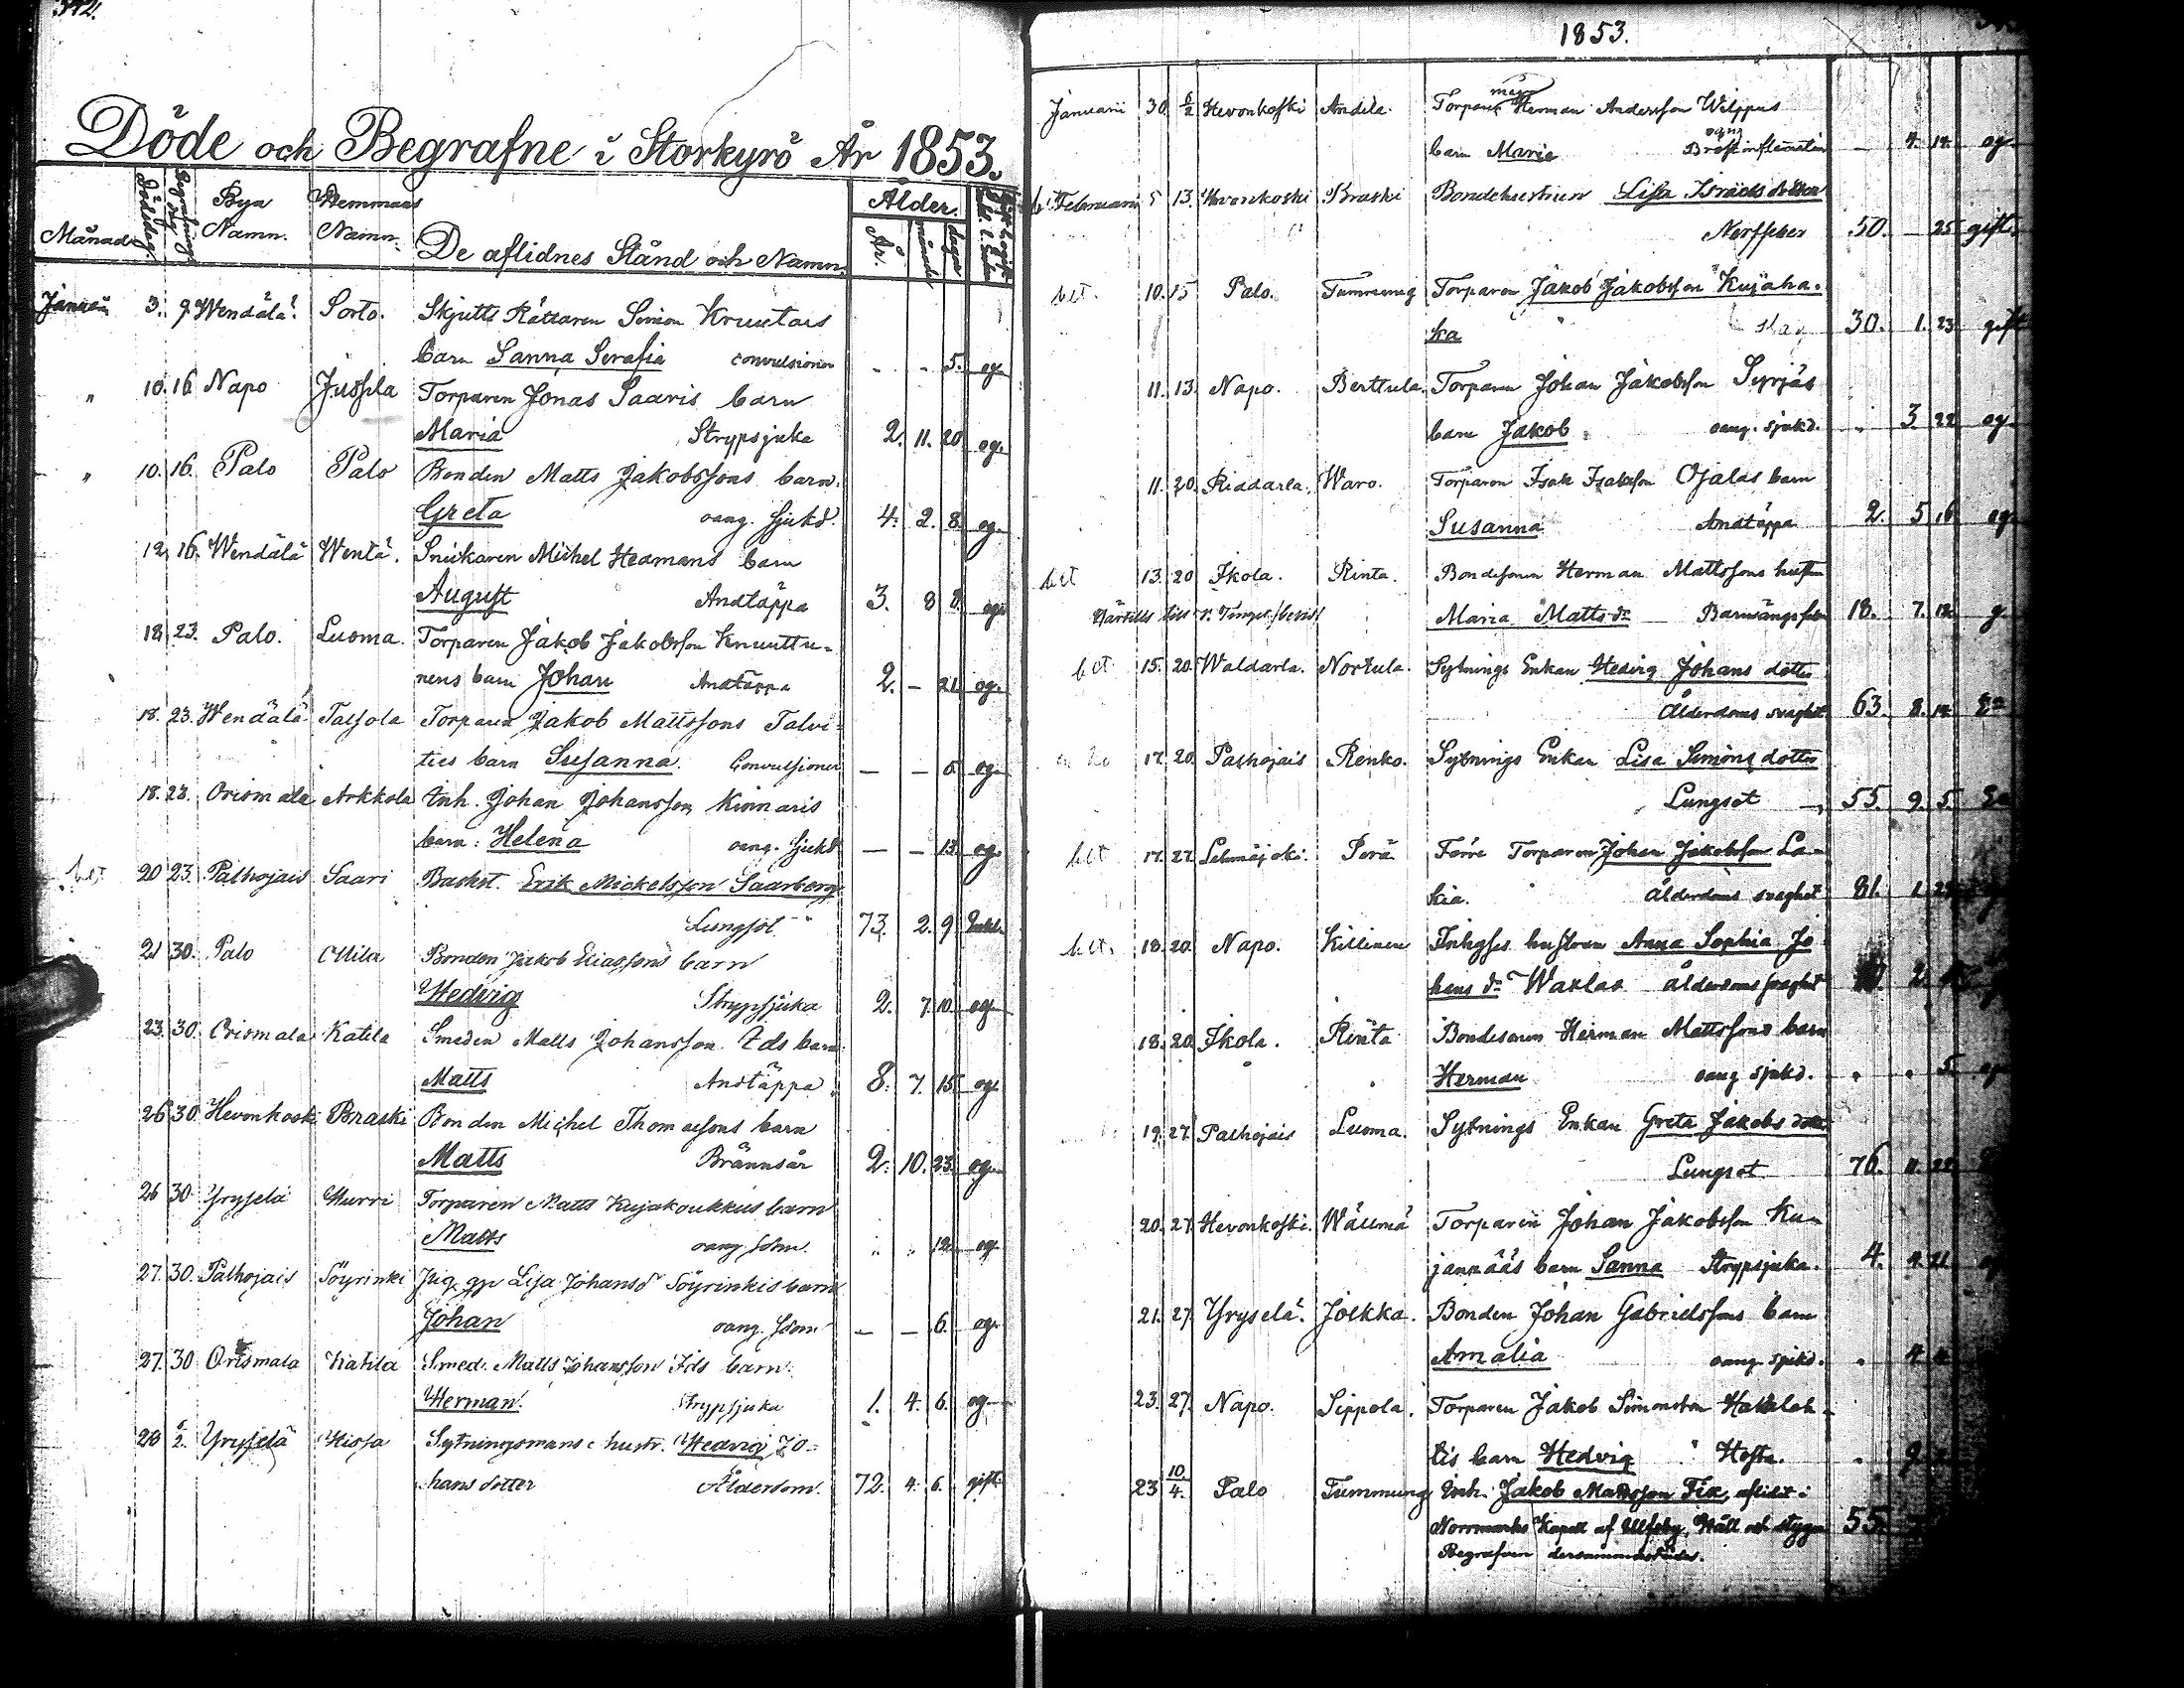 342.
Döde och Begrafne i Storkyrö År 1853.
Månad Dödsdag Begrafnings dag Bya Namn. Hemmans Namn. De aflidnes Stånd och Namn. Ålder. År. månad dagar
Januari 3. 9. Wendälä Sorto. Skjutts Rättaren Simon Kruutars
barn Sanna Serafia convulsioner - - 5. og.
" 10. 16 Napo Jussila Torparen Jonas Saaris barn
Maria Strypsjuka 2. 11. 20 og.
" 10. 16. Palo Palo Bonden Matts Jakobssons barn.
Greta oang. sjukd. 4. 2. 8. og.
12. 16. Wendälä Wentä. Snickaren Michel Hedmans barn
August Andtäppa 3. 8 8. og.
18. 23. Palo. Luoma. Torparen Jakob Jakobsson Knuuttu-
nens barn Johan Andtäppa 2. - 21. og.
18. 23. Wendälä Talsola Torparen Jakob Mattssons Talvi-
ties barn Susanna. Convulsioner — — 6. og.
18. 23. Orismala Arkkola Inh. Johan Johansson Kinnaris
barn: Helena oang. sjukd — — 13. og.
bet 20 23. Palhojais Saari Backst. Erik Mickelsson Saarberg
Lungsot 73. 2. 9. Enkl.
21 30. Palo Ollila Bonden Jakob Eliassons barn
Hedvig Strypsjuka 2. 7. 10. og.
23. 30. Orismala Katila Smeden Matts Johansson Ids barn
Matts Andtäppa 8. 7. 15. og.
26 30. Hevonkoski Braski Bonden Michel Thomassons barn
Matts Brännsår 2. 10. 23. og.
26 30. Yryselä Murri Torparen Matts Kujakoukkus barn
Matts oang. sdom. " " 12. og.
27. 30. Palhojais Söyrinki Jnig. gp Lisa Johansd Söyrinkis barn
Johan oang. sdom — — 6. og.
27. 30 Orismala Katila Smed. Matts Johansson Ids barn.
Herman. Strypsjuka 1. 4. 6. og.
28 6/2. Yryselä Hissa Sytningsmans hustr. Hedvig Jo-
hans dotter Ålderdom. 72. 4. 6. gift.
1853.
Januarii 30. 6/2 Hevonkoski Andila. Torparen Herman Andersson Wilppus
barn Maria Bröstinflamation — 4. 14. og
Februarii 5 13. Hevonkoski Braski Bondehustrun Lisa Israels dotter
Nerffeber 50. — 25 gift.
bet. 10. 15 Palo. Tummung Torparen Jakob Jakobsson Kujaha-
ka Slag 30. 1. 23. gift
11. 13. Napo. Berttula. Torparen Johan Jakobsson Syrjäs
barn Jakob oang. sjukd. " 3 22 og
11. 20. Riddarla. Waro. Torparen Isak Isaksson Ojalas barn
Susanna Andtäppa 2. 5 16 og
bet 13. 20 Ikola. Rinta. Bondesonen Herman Mattssons hustru
Maria Matts dr Barnsängsfeber 18. 7. g.
bet 15. 20. Waldarla. Nortula. Sytnings Enkan Hedvig Johans dotter
Ålderdoms svaghet 63. 8. 14. Ea
17. 20. Palhojais Renko. Sytnings Enkan Lisa Simons dotter
Lungsot 55. 9. 5.
bet 17. 27. Lehmäjoki. Perä Förre Torparen Johan Jakobsson La-
kia. Ålderdoms svaghet 81. 1.
bet. 18. 20. Napo. Killinen Inhyses hustrun Anna Sophia Jo
hans dr Warlas ålderdoms svaghet 2.
18. 20. Ikola. Rinta Bondesonen Herman Mattssons barn
Herman oang sjukd. " " 5. og
19. 27. Palhojais Luoma. Sytnings Enkan Greta Jakobs dotter
Lungsot 76. 11. 22.
20. 27. Hevonkoski. Wälimä Torparen Johan Jakobsson Ku-
janpääs barn Sanna Strypsjuka. 4. 4. 21.
21. 27. Yryselä. Jolkka. Bonden Johan Gabrielssons barn
Amalia oang. sjukd. " 4
23. 27. Napo. Sippola. Torparen Jakob Simonsson Hakaleh-
tis barn Hedvig Hosta. " 9.
23 10/4. Palo Tummung Inh. Jakob Mattsson Fix, aflidit i
Norrmarks Kapell af Ulfsby, Håll och stygn 55.
Begrafven dersammastädes.